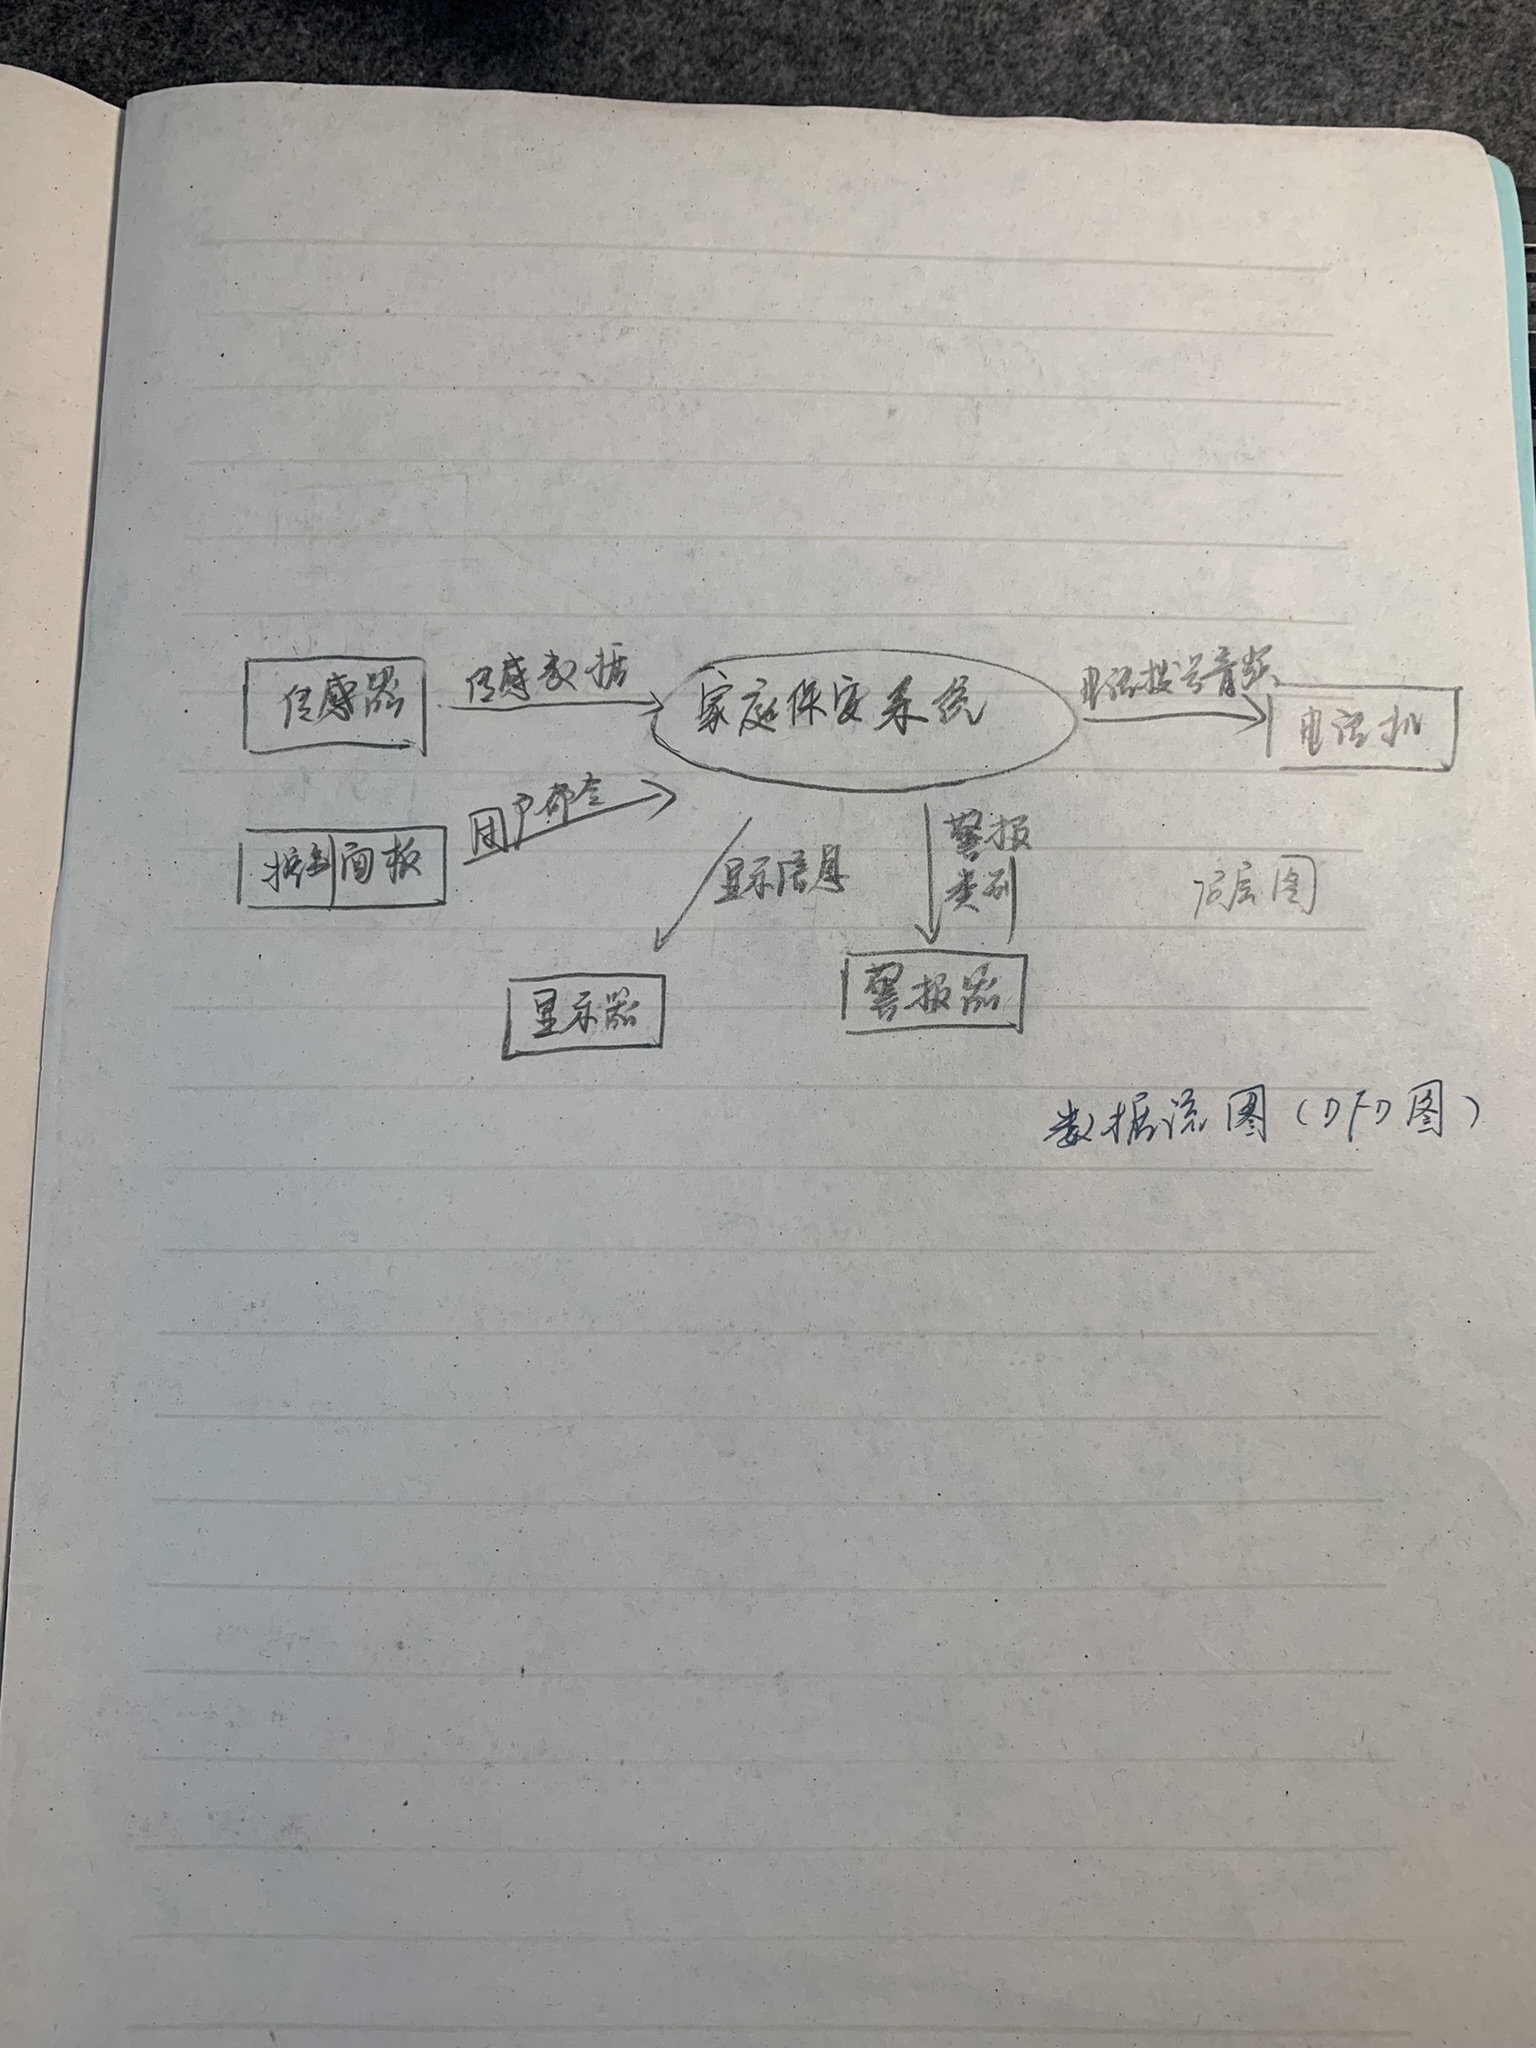 传感器
传感数据
家庭保安系统
电话拨号音频
电话机
控制面板
用户命令
显示信息
警报
类别
顶层图
显示器
警报器
数据流图(DFD图)